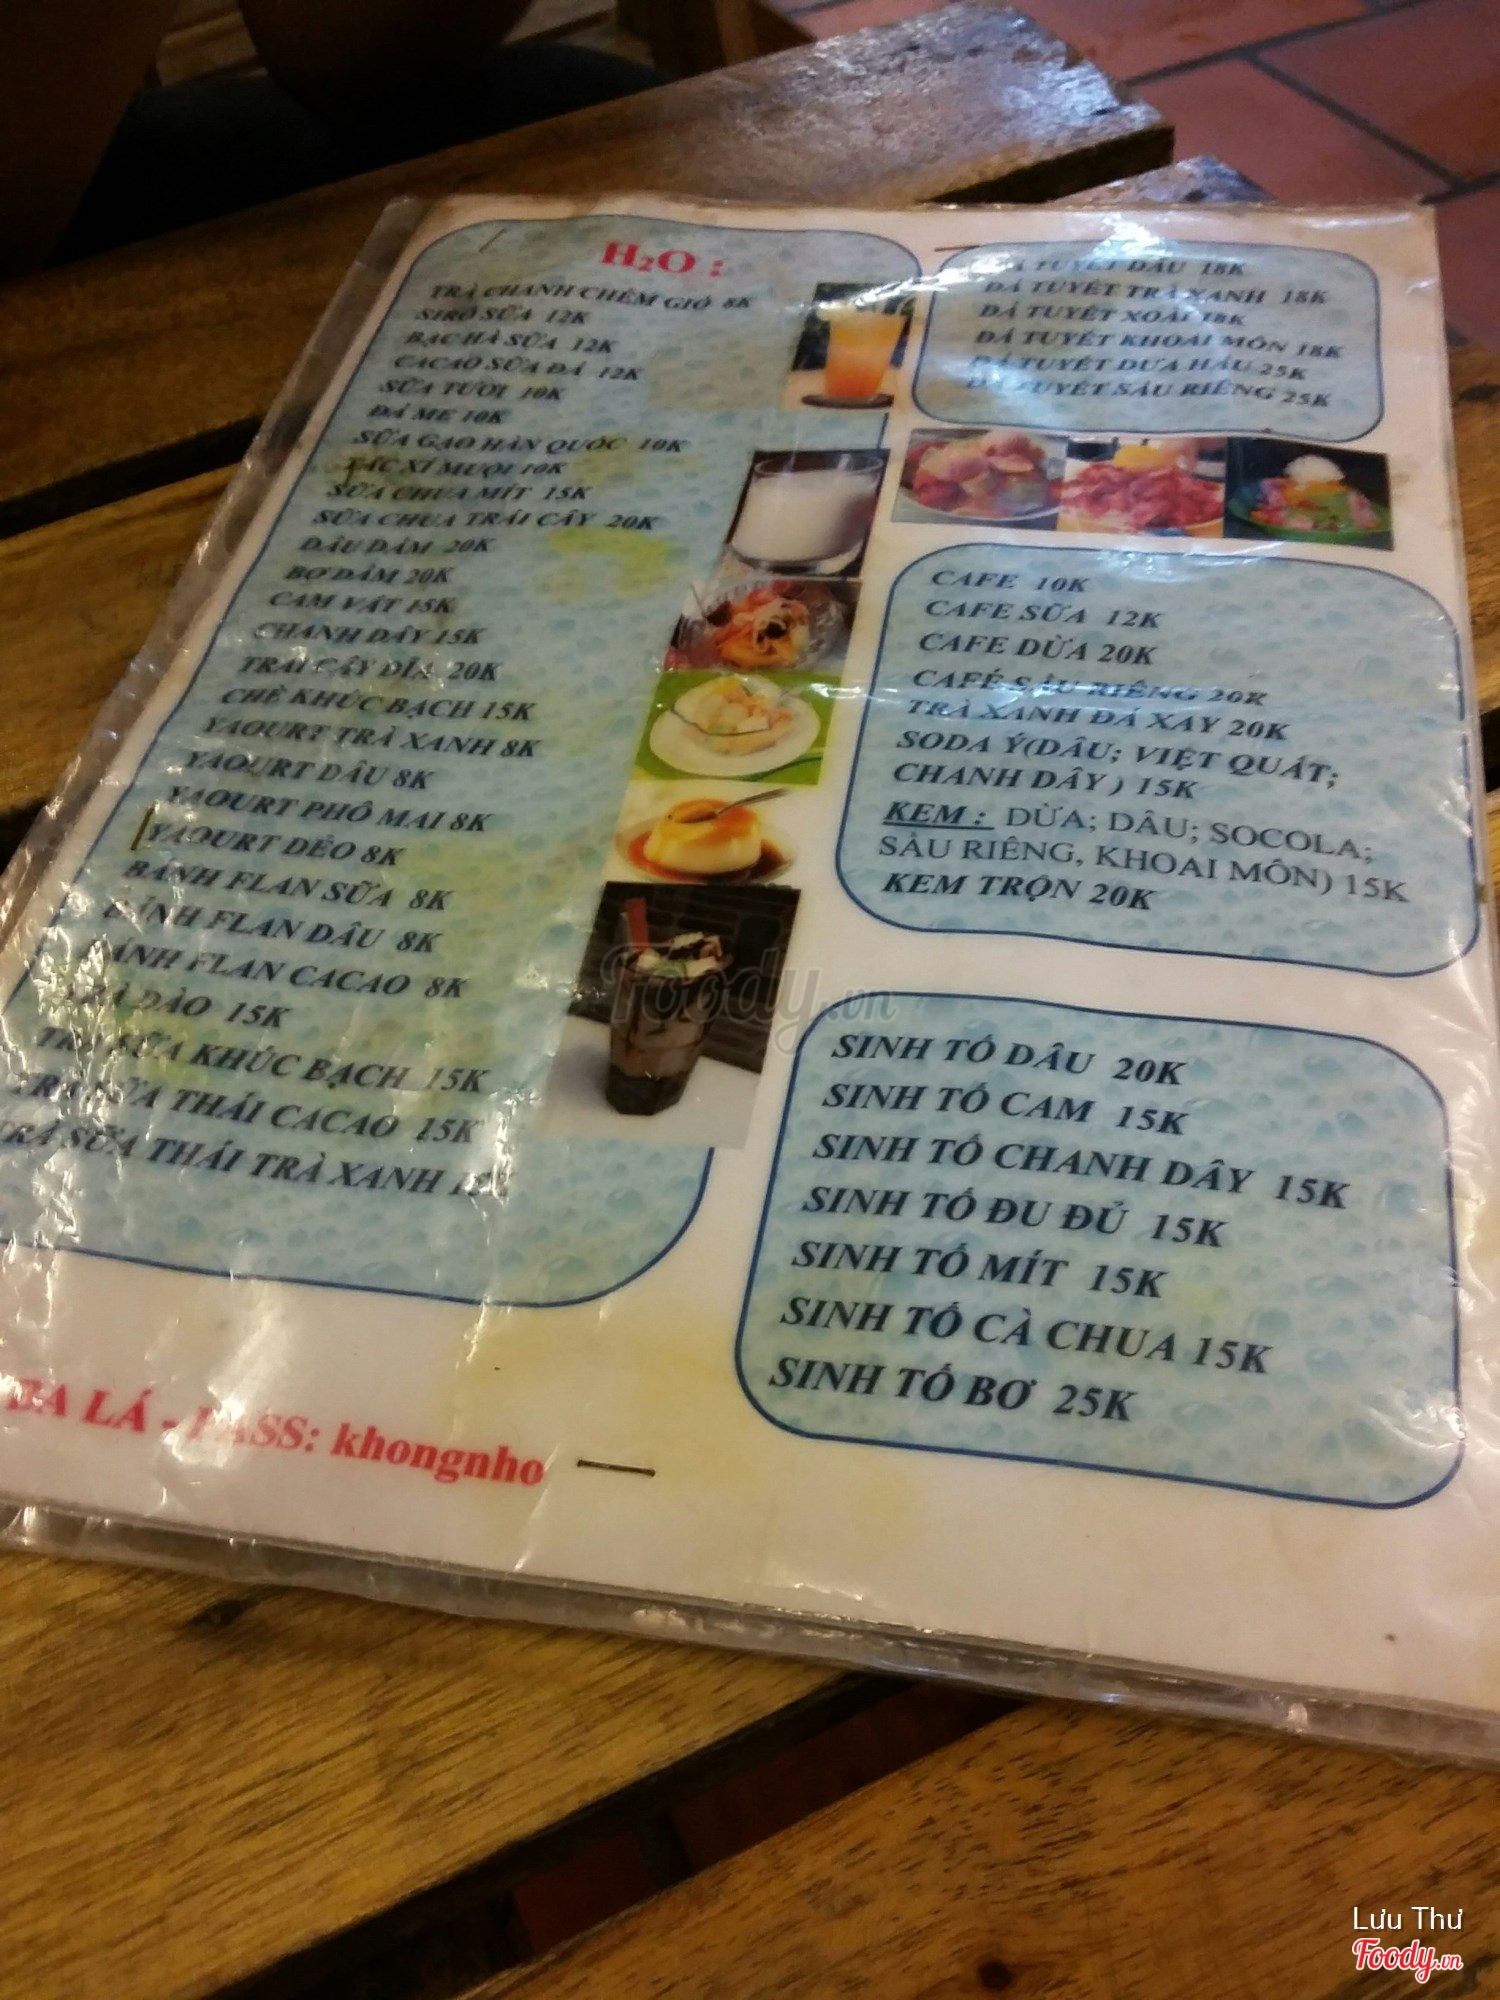 H₂O :
TRÀ CHANH CHÉM GIÓ 8K
SIRÔ SỮA 12K
BẠC HÀ SỮA 12K
CACAO SỮA ĐÁ 12K
SỮA TƯƠI 10K
ĐÁ ME 10K
SỮA GẠO HÀN QUỐC 10K
TẮC XÍ MUỘI 10K
SỮA CHUA MÍT 15K
SỮA CHUA TRÁI CÂY 20K
DÂU DẦM 20K
BƠ DẦM 20K
CAM VẮT 15K
CHANH DÂY 15K
TRÁI CÂY DĨA 20K
CHÈ KHÚC BẠCH 15K
YAOURT TRÀ XANH 8K
YAOURT DÂU 8K
YAOURT PHÔ MAI 8K
YAOURT DẺO 8K
BÁNH FLAN SỮA 8K
BÁNH FLAN DÂU 8K
BÁNH FLAN CACAO 8K
TRÀ ĐÀO 15K
TRÀ SỮA KHÚC BẠCH 15K
TRÀ SỮA THÁI CACAO 15K
TRÀ SỮA THÁI TRÀ XANH
BA LÁ - PASS: khongnho
ĐÁ TUYẾT DÂU 18K
ĐÁ TUYẾT TRÀ XANH 18K
ĐÁ TUYẾT XOÀI 18K
ĐÁ TUYẾT KHOAI MÔN 18K
ĐÁ TUYẾT DƯA HẤU 25K
ĐÁ TUYẾT SẦU RIÊNG 25K
CAFE 10K
CAFE SỮA 12K
CAFE DỪA 20K
CAFÉ SẦU RIÊNG 20K
TRÀ XANH ĐÁ XAY 20K
SODA Ý(DÂU; VIỆT QUÁT;
CHANH DÂY ) 15K
KEM : DỪA; DÂU; SOCOLA;
SẦU RIÊNG, KHOAI MÔN) 15K
KEM TRỘN 20K
SINH TỐ DÂU 20K
SINH TỐ CAM 15K
SINH TỐ CHANH DÂY 15K
SINH TỐ ĐU ĐỦ 15K
SINH TỐ MÍT 15K
SINH TỐ CÀ CHUA 15K
SINH TỐ BƠ 25K
Foody.vn
Lưu Thư
Foody.vn